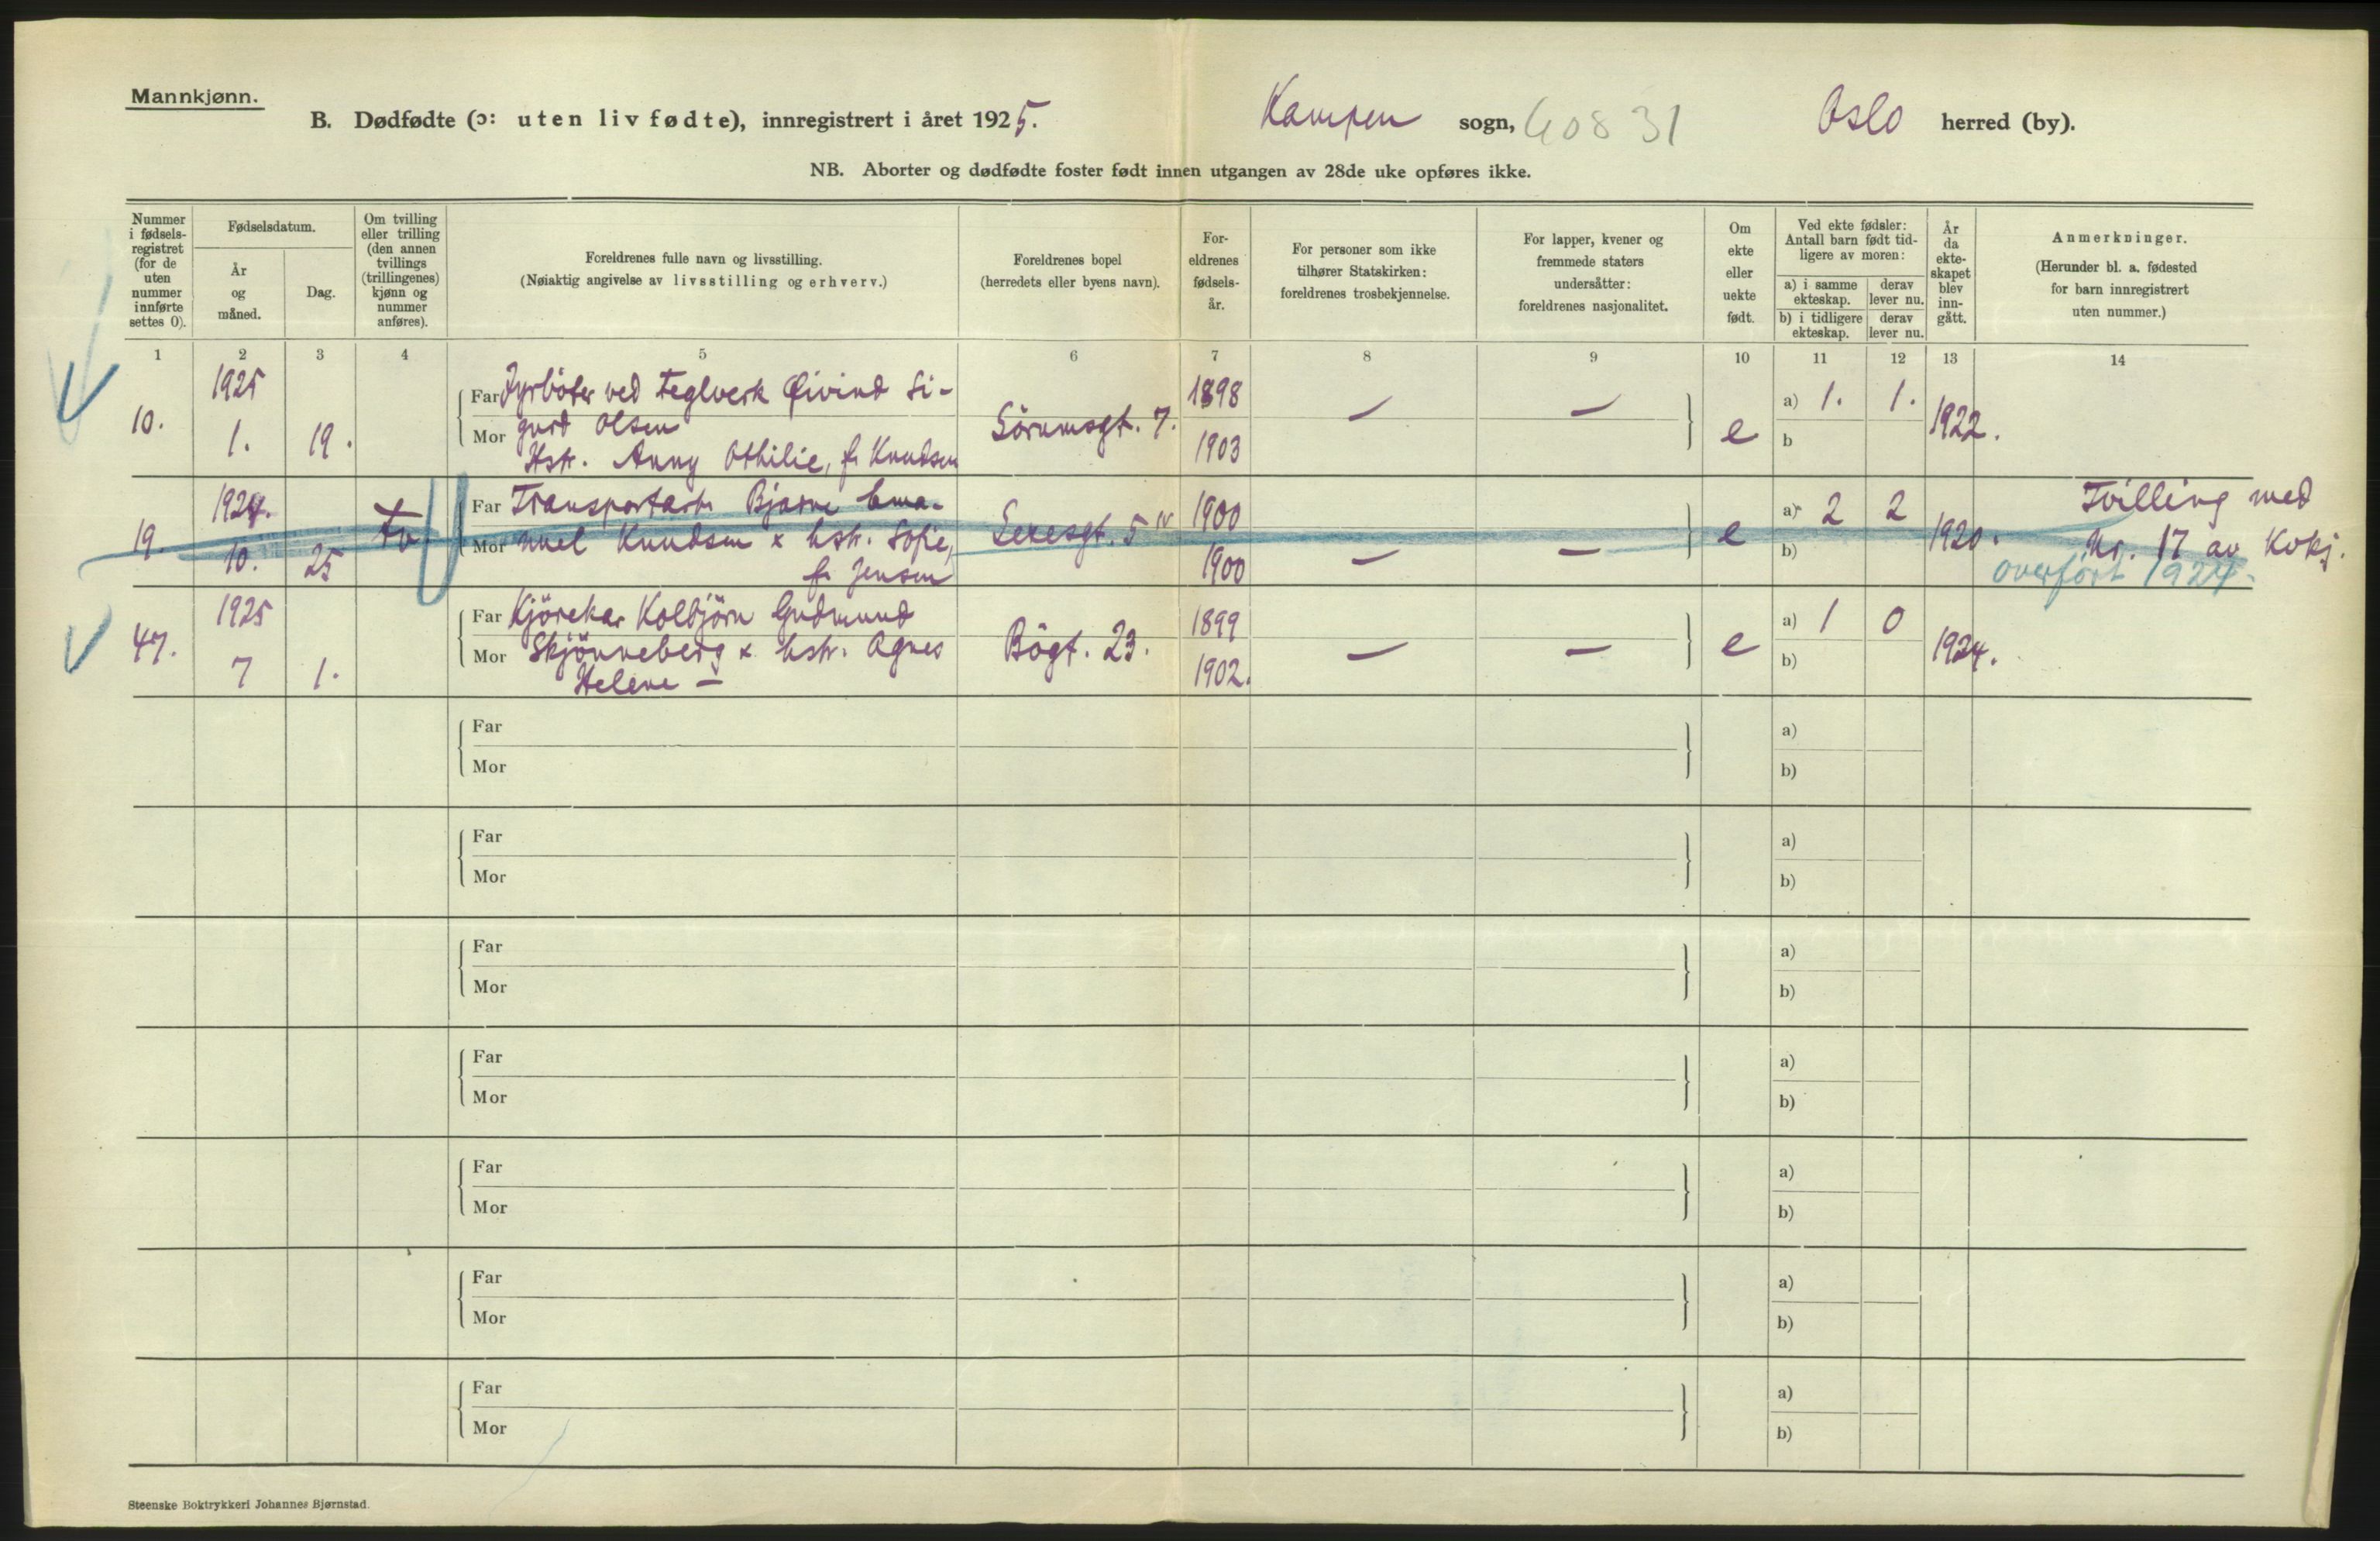 Mannkjønn.
B. Dødfødte (ɔ: uten liv fødte), innregistrert i året 1925. Kampen sogn, 40831 Oslo herred (by).
NB. Aborter og dødfødte foster født innen utgangen av 28de uke opføres ikke.
Nummer i fødsels-registret (for de uten nummer innførte settes 0).
Fødselsdatum.
År og måned.
Dag.
Om tvilling eller trilling (den annen tvillings (trillingenes) kjønn og nummer anføres).
Foreldrenes fulle navn og livsstilling.
(Nøiaktig angivelse av livsstilling og erhverv.)
Foreldrenes bopel
(herredets eller byens navn).
For-eldrenes fødsels-år.
For personer som ikke tilhører Statskirken: foreldrenes trosbekjennelse.
For lapper, kvener og fremmede staters undersåtter: foreldrenes nasjonalitet.
Om ekte eller uekte født.
Ved ekte fødsler: Antall barn født tid-ligere av moren:
a) i samme ekteskap.
derav lever nu.
b) i tidligere ekteskap.
derav lever nu.
År da ekte-skapet blev inn-gått.
Anmerkninger.
(Herunder bl. a. fødested for barn innregistrert uten nummer.)
1 2 3 4 5 6 7 8 9 10 11 12 13 14
10. 1925 1. 19.
Far Fyrböter ved Teglverk Øivind Si-
Mor gurd Olsen
Hstr. Anny Othilie, f. Knudsen
Sörumsgt. 7. 1898 1903 — — e a) 1. 1. b 1922.
19. 1924. 10. 25 tv.
Far Transportarb. Bjarne Ema-
Mor nuel Knudsen x hstr. Sofie,
f. Jensen
5 IV 1900 1900 — — e a) 2 2 b) 1920.
Tvilling med
Nr. 17 av Kvkj.
overført 1924.
47. 1925 7 1.
Far Kjörekar Kolbjörn Gudmund
Mor Skjönneberg x hstr. Agnes
Helene —
Bögt. 23. 1899 1902. — — e a) 1 0 b) 1924.
Far a)
Mor b)
Far a)
Mor b)
Far a)
Mor b)
Far a)
Mor b)
Far a)
Mor b)
Far a)
Mor b)
Far a)
Mor b)
Steenske Boktrykkeri Johannes Bjørnstad.